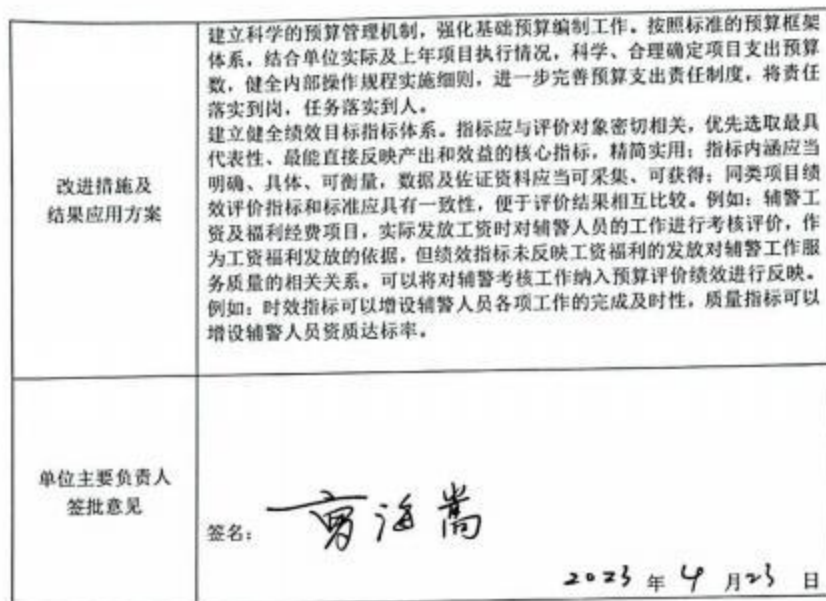 建立科学的预算管理机制，强化基础预算编制工作。按照标准的预算框架
体系，结合单位实际及上年项目执行情况，科学、合理确定项目支出预算
数，健全内部操作规程实施细则，进一步完善预算支出责任制度，将责任
落实到岗，任务落实到人。
建立健全绩效目标指标体系。指标应与评价对象密切相关，优先选取最具
代表性、最能直接反映产出和效益的核心指标，精简实用；指标内涵应当
明确、具体、可衡量，数据及佐证资料应当可采集、可获得；同类项目绩
效评价指标和标准应具有一致性，便于评价结果相互比较。例如：辅警工
资及福利经费项目，实际发放工资时对辅警人员的工作进行考核评价，作
为工资福利发放的依据，但绩效指标未反映工资福利的发放对辅警工作服
务质量的相关关系。可以将对辅警考核工作纳入预算评价绩效进行反映。
例如：时效指标可以增设辅警人员各项工作的完成及时性，质量指标可以
增设辅警人员资质达标率。
改进措施及
结果应用方案
单位主要负责人
签批意见
签名：海嵩
2023 年 4 月 23 日